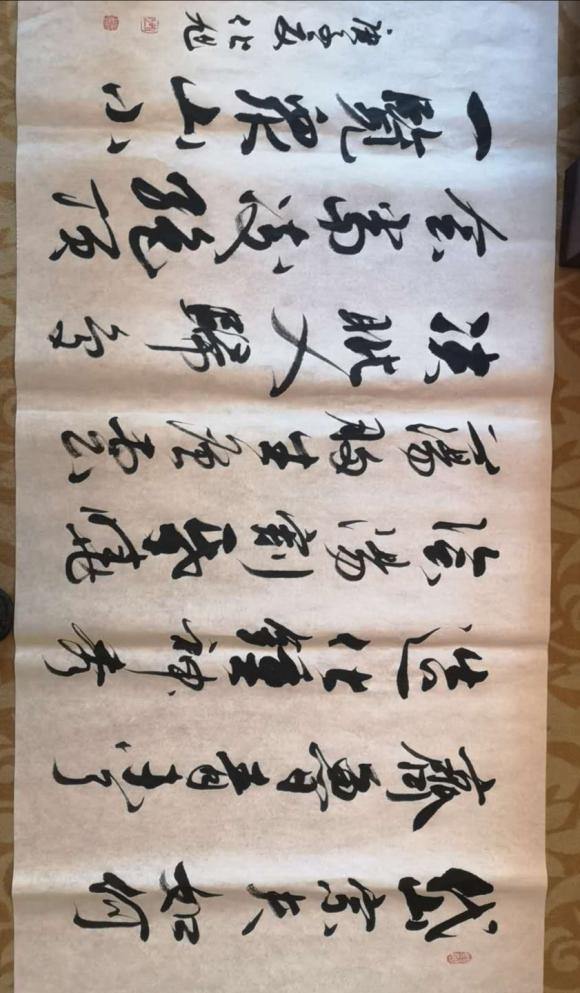 岱宗夫如何
齊魯青未了
造化鍾神秀
陰陽割昏曉
蕩胸生層雲
決眦入歸鳥
會當凌絕頂
一覽眾山小